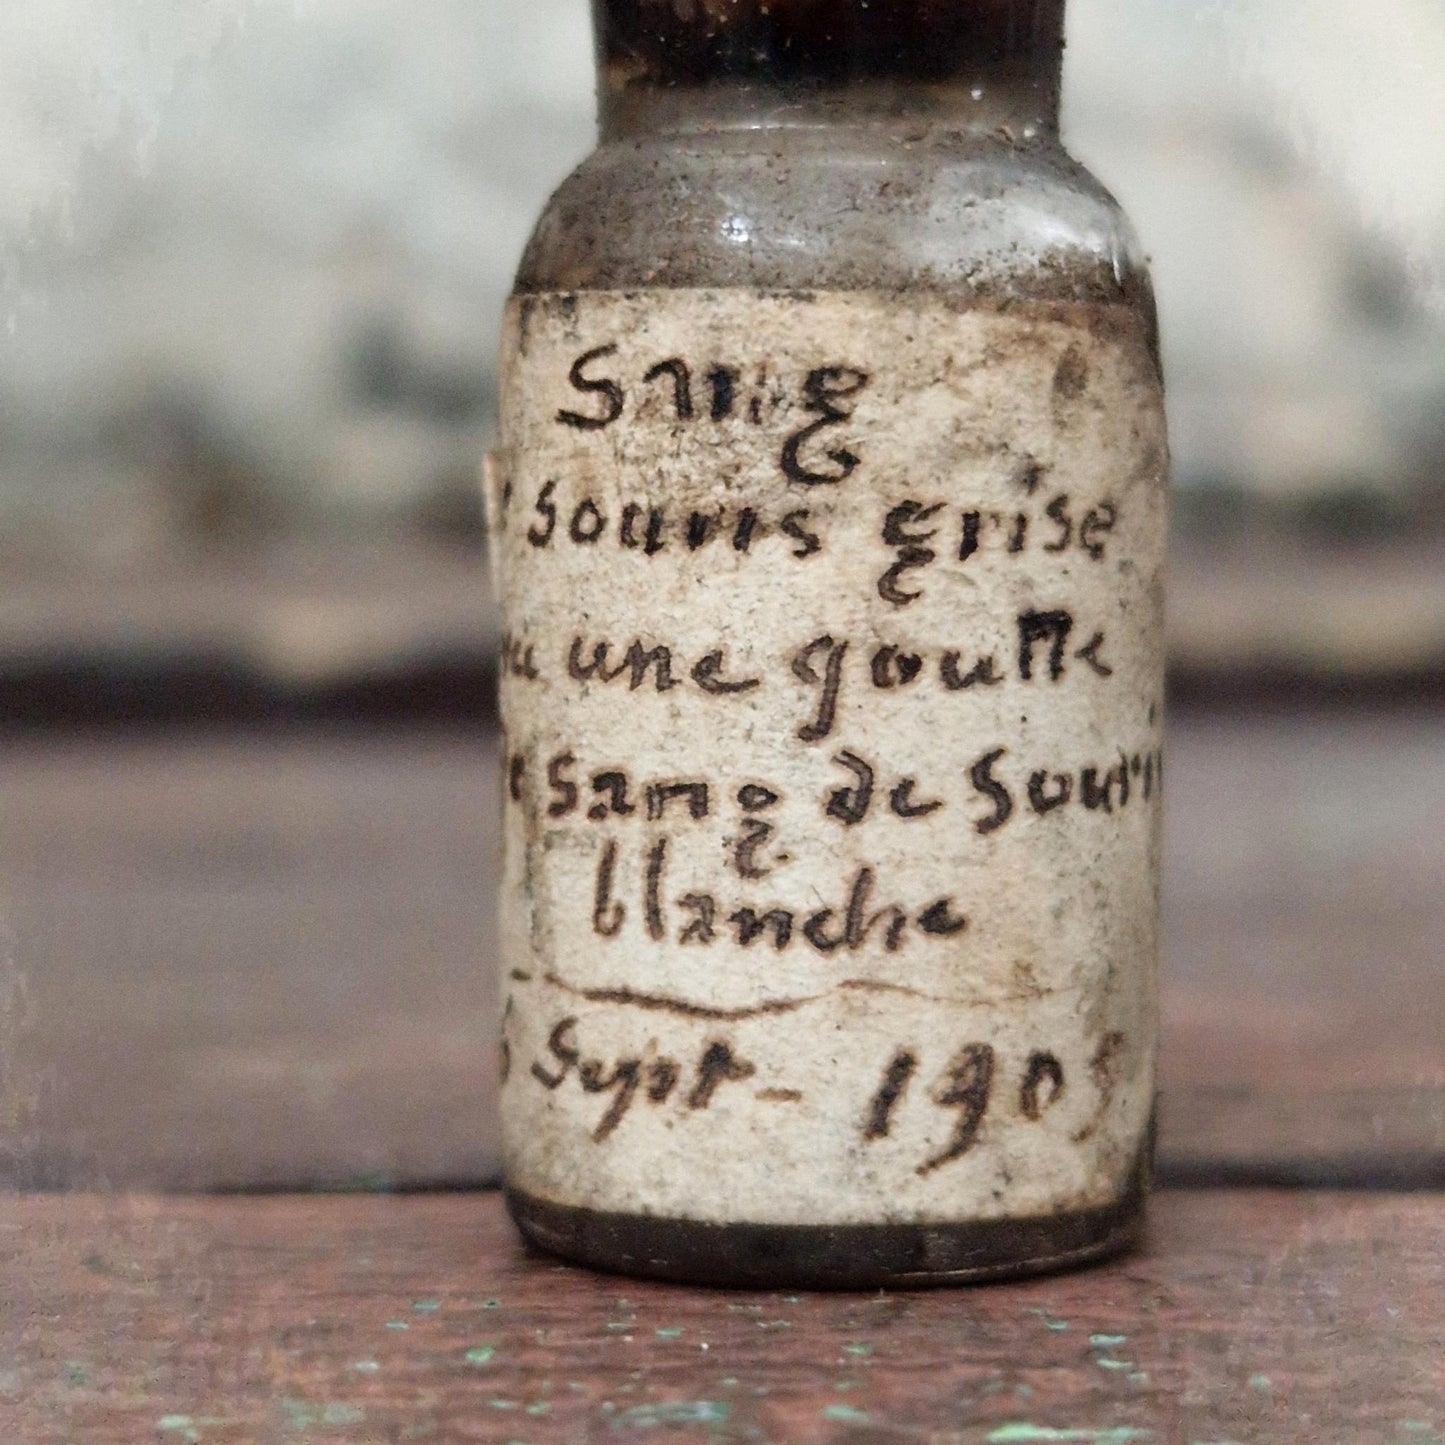 Sang
souris grise
une goutte
sang de souri
blanche
Sept - 1905